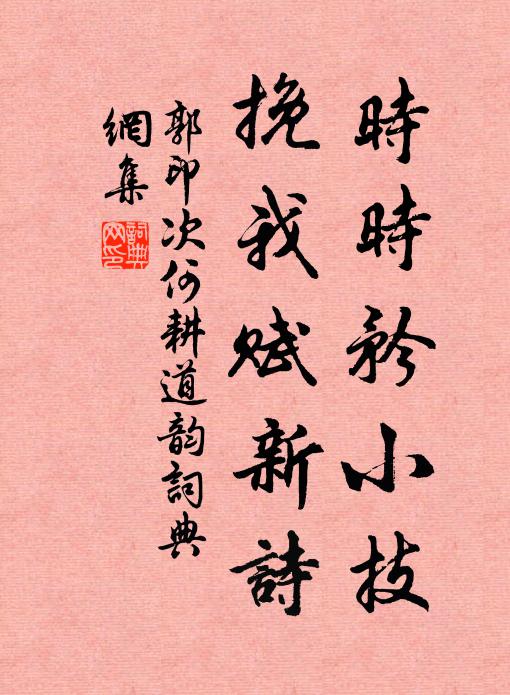 時時矜小技
挽我賦新詩
郭印次何耕道韵詞典
網集
詞典
网印